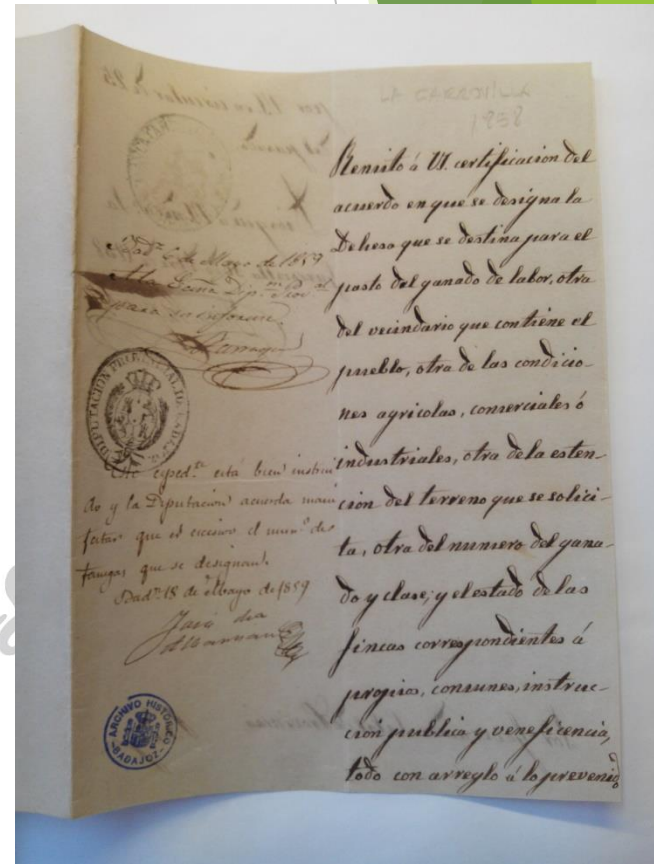 LA CARDOVILLA
1858
Remito á VI. certificacion del
acuerdo en que se designa la
Dehesa que se destina para el
pasto del ganado de labor, otra
del vecindario que contiene el
pueblo, otra de las condicio-
nes agricolas, comerciales ó
industriales, otra dela esten-
cion del terreno que se solici-
ta, otra del numero del gana-
do y clase; y el estado de las
fincas correspondientes á
propios, comunes, instruc-
cion publica y veneficencia,
todo con arreglo á lo prevenido
de Mayo de 1859
A la
para su informe.
DIPUTACION PROVINCIAL DE BADAJOZ
esped.te está bien instrui
do y la Diputacion acuerda mani
festar que es escesivo el num.o de
fanegas que se designan.
Bad.z 18 de Mayo de 1859
José
ARCHIVO HISTORICO
BADAJOZ